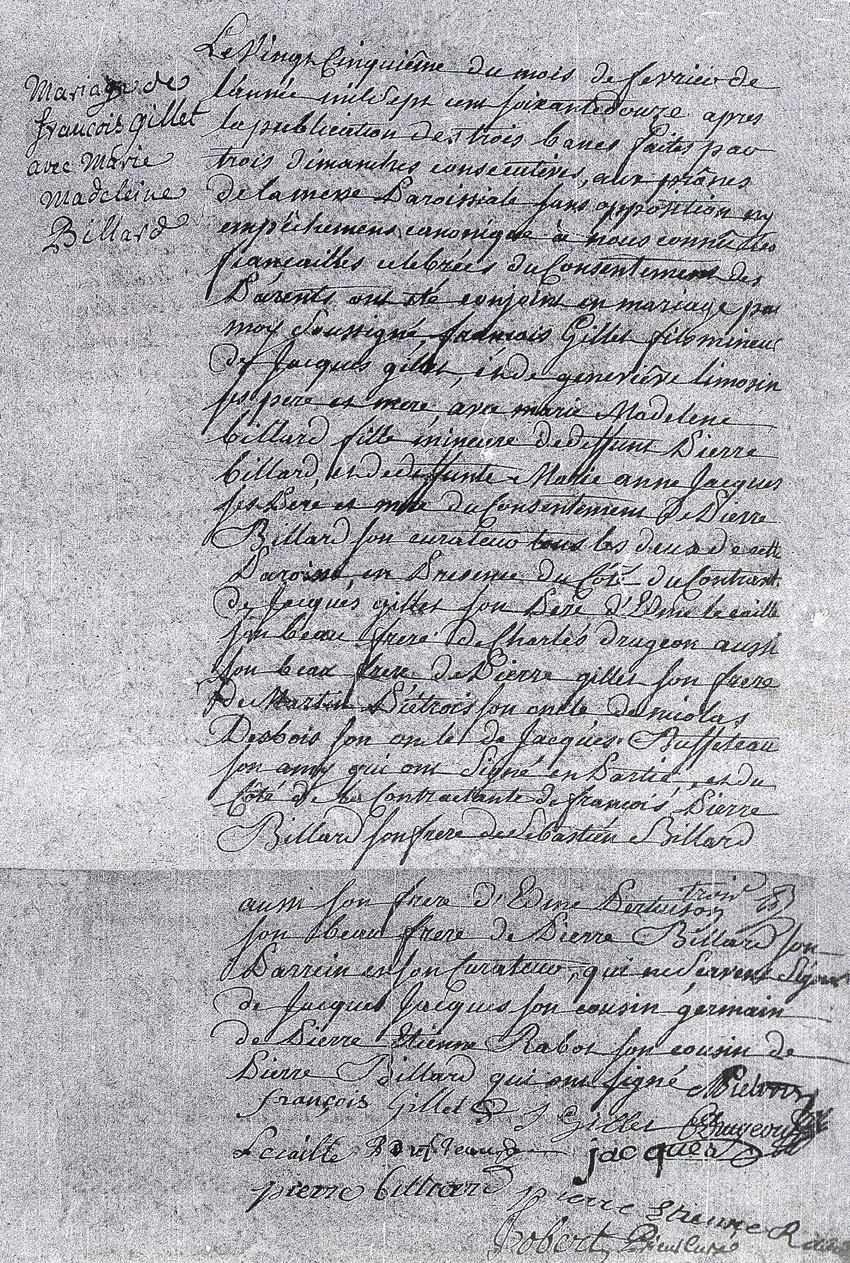 Mariage de
françois gillet
avec Marie
Madeleine
Billard
Le Vingt Cinquiême du mois de fevrier de
l'année mil sept cent soixante douze apres
la publication des trois bancs faites par
trois dimanches consecutives, aux prônes
de la messe Paroissiale sans opposition ny
empêchemens canonique à nous connu les
fiancailles celebrées du Consentement des
Parents ont été conjoint en mariage par
moy Soussigné françois Gillet fils mineur
de Jacques gillet, et de geneviêve limosin
ses pere et mere, avec marie Madelene
billard fille mineure de deffunt Pierre
billard, et de deffunte Marie anne Jacques
ses Pere et mere du Consentement de Pierre
Billard son curateur tous les deux de cette
Paroisse en Presence du Côté du Contract
de Jacques gillet son Pere d'Edme le caille
son beau frere de Charles drugeon aussi
son beau frere de Pierre gillet son frere
de Martin Piétrois son oncle de nicolas
Desbois son oncle de Jacques Buffeteau
son amy qui ont Signé en Partie, et du
Côté de la Contractante de françois Pierre
Billard son frere de Sebastien Billard
aussi son frere d'Edme
son beau frere de Pierre Billard son
Parrein et son Curateur, qui ne Scavent Signer
de Jacques Jacques son cousin germain
de Pierre Etienne Rabot son cousin de
Pierre Billard qui ont signé
françois Gillet J Gillet
Lecaille jacques
pierre billiard pierre Etienne
Robert